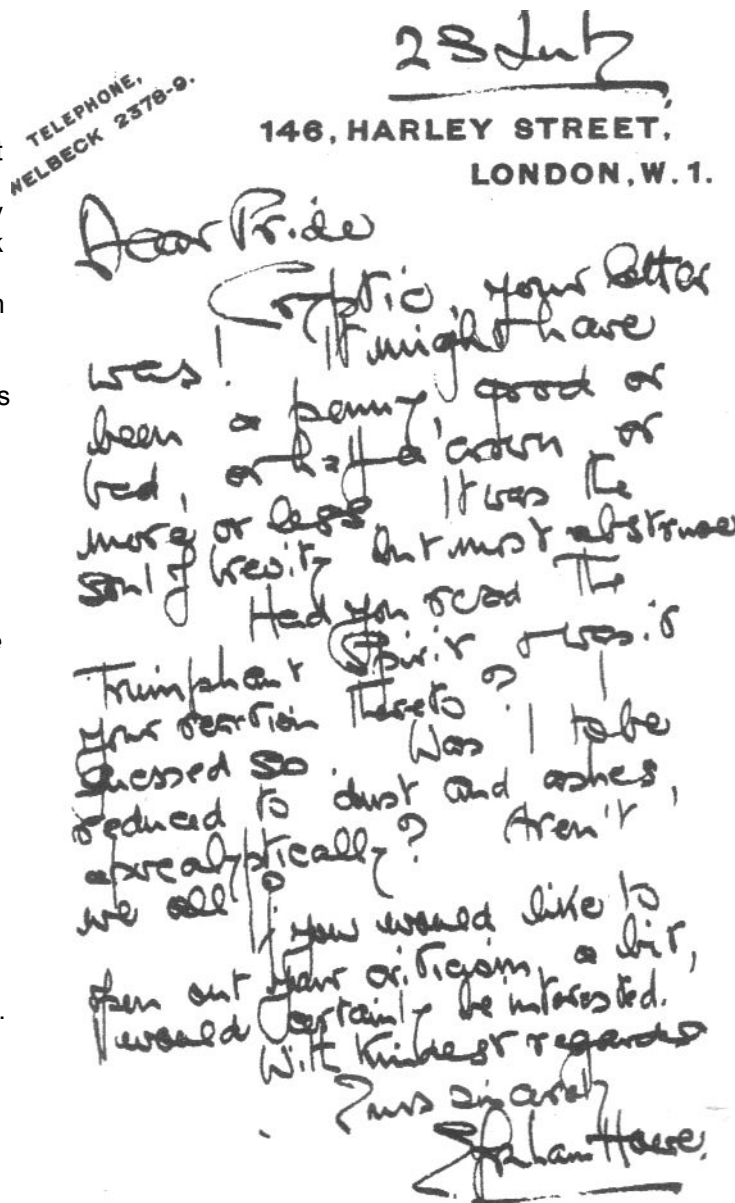 28 July
TELEPHONE,
WELBECK 2378-9.
146, HARLEY STREET,
LONDON, W. 1.
Dear Pride
Cryptic, your letter
was! It might have
been a penny good or
bad, or half a crown or
more or less It was the
soul of brevity but most abstruse
Had you read The
Triumphant Spirit & was it
your reaction thereto? Was I to be
guessed so
reduced to dust and ashes,
apocalyptically? Aren't
we all? If you would like to
open out your criticism a bit,
I would certainly be interested.
With kindest regards
Yours sincerely
Graham Howe.